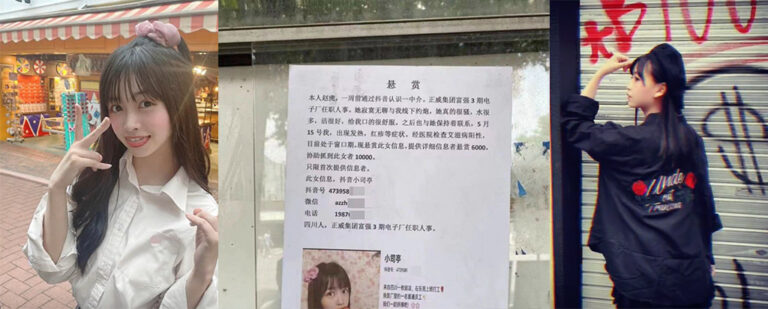 悬 赏
本人赵虎，一周前通过抖音认识一中介，正威集团富强3期电
子厂任职人事。她寂寞无聊与我线下约炮，她真的很骚，水很
多，活很好，给我口的很舒服，之后也与她保持着联系，5月
15号我，出现发热，红疹等症状，经医院检查艾滋病阳性，
目前处于窗口期。现悬赏此女信息，提供详细信息者悬赏6000，
协助抓到此女者10000。
只限首次提供信息者。
此女信息，抖音小司亭
抖音号 473958
微信 azzh
电话 1987
四川人，正威集团富强3期电子厂任职人事。
小司亭